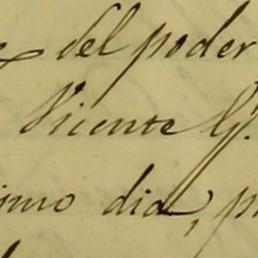 del poder
Vicente G.
imo dia, p